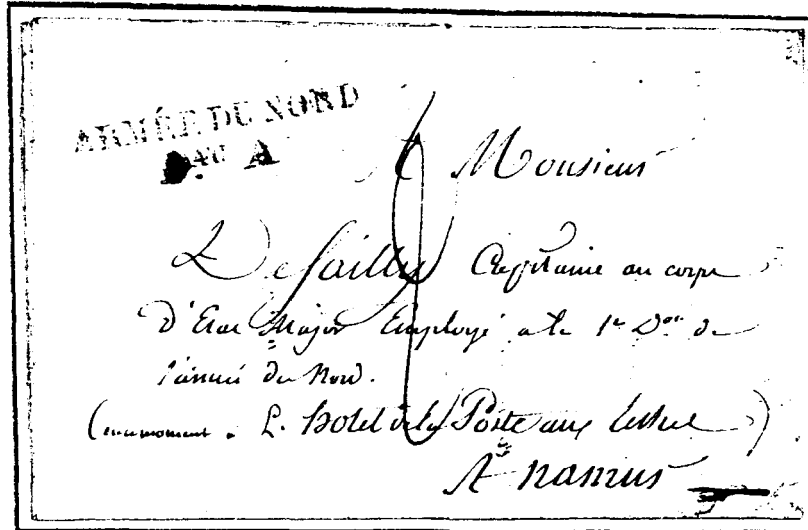 ARMÉE DU NORD
Bau A
A Monsieur
Defailly Capitaine au corps
d'Etat Major Employé a la 1e Don de
l'armée du Nord.
(en ce moment. L. hotel de la Poste aux lettres)
A namur